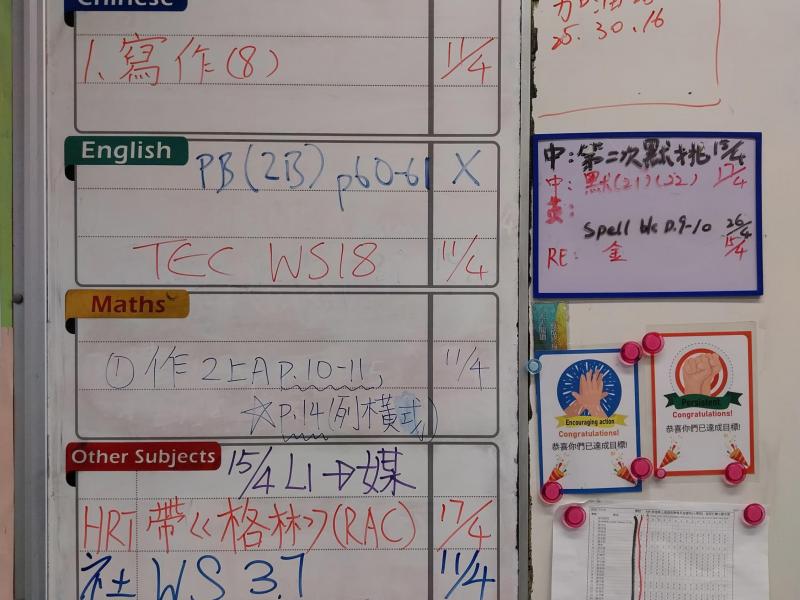 Chinese
1. 寫作(8) 11/4
English
PB(2B) p60-61 X
TEC WS18 11/4
Maths
① 作2上A p.10-11, 11/4
☆p.14(列橫式)
Other Subjects
15/4 L1→媒
HRT 帶《格林》(RAC) 17/4
社 WS 3.7 11/4
25. 30. 16
中: 第二次默 15/4
中: 默(21)(22) 17/4
英:
Spell p.9-10 26/4
RE: 金 15/4
Encouraging action
Congratulations!
恭喜你們已達成目標!
Persistent
Congratulations!
恭喜你們已達成目標!